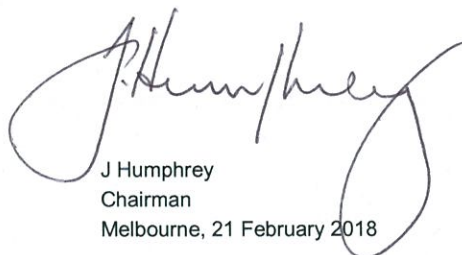 J. Humphrey
J Humphrey
Chairman
Melbourne, 21 February 2018